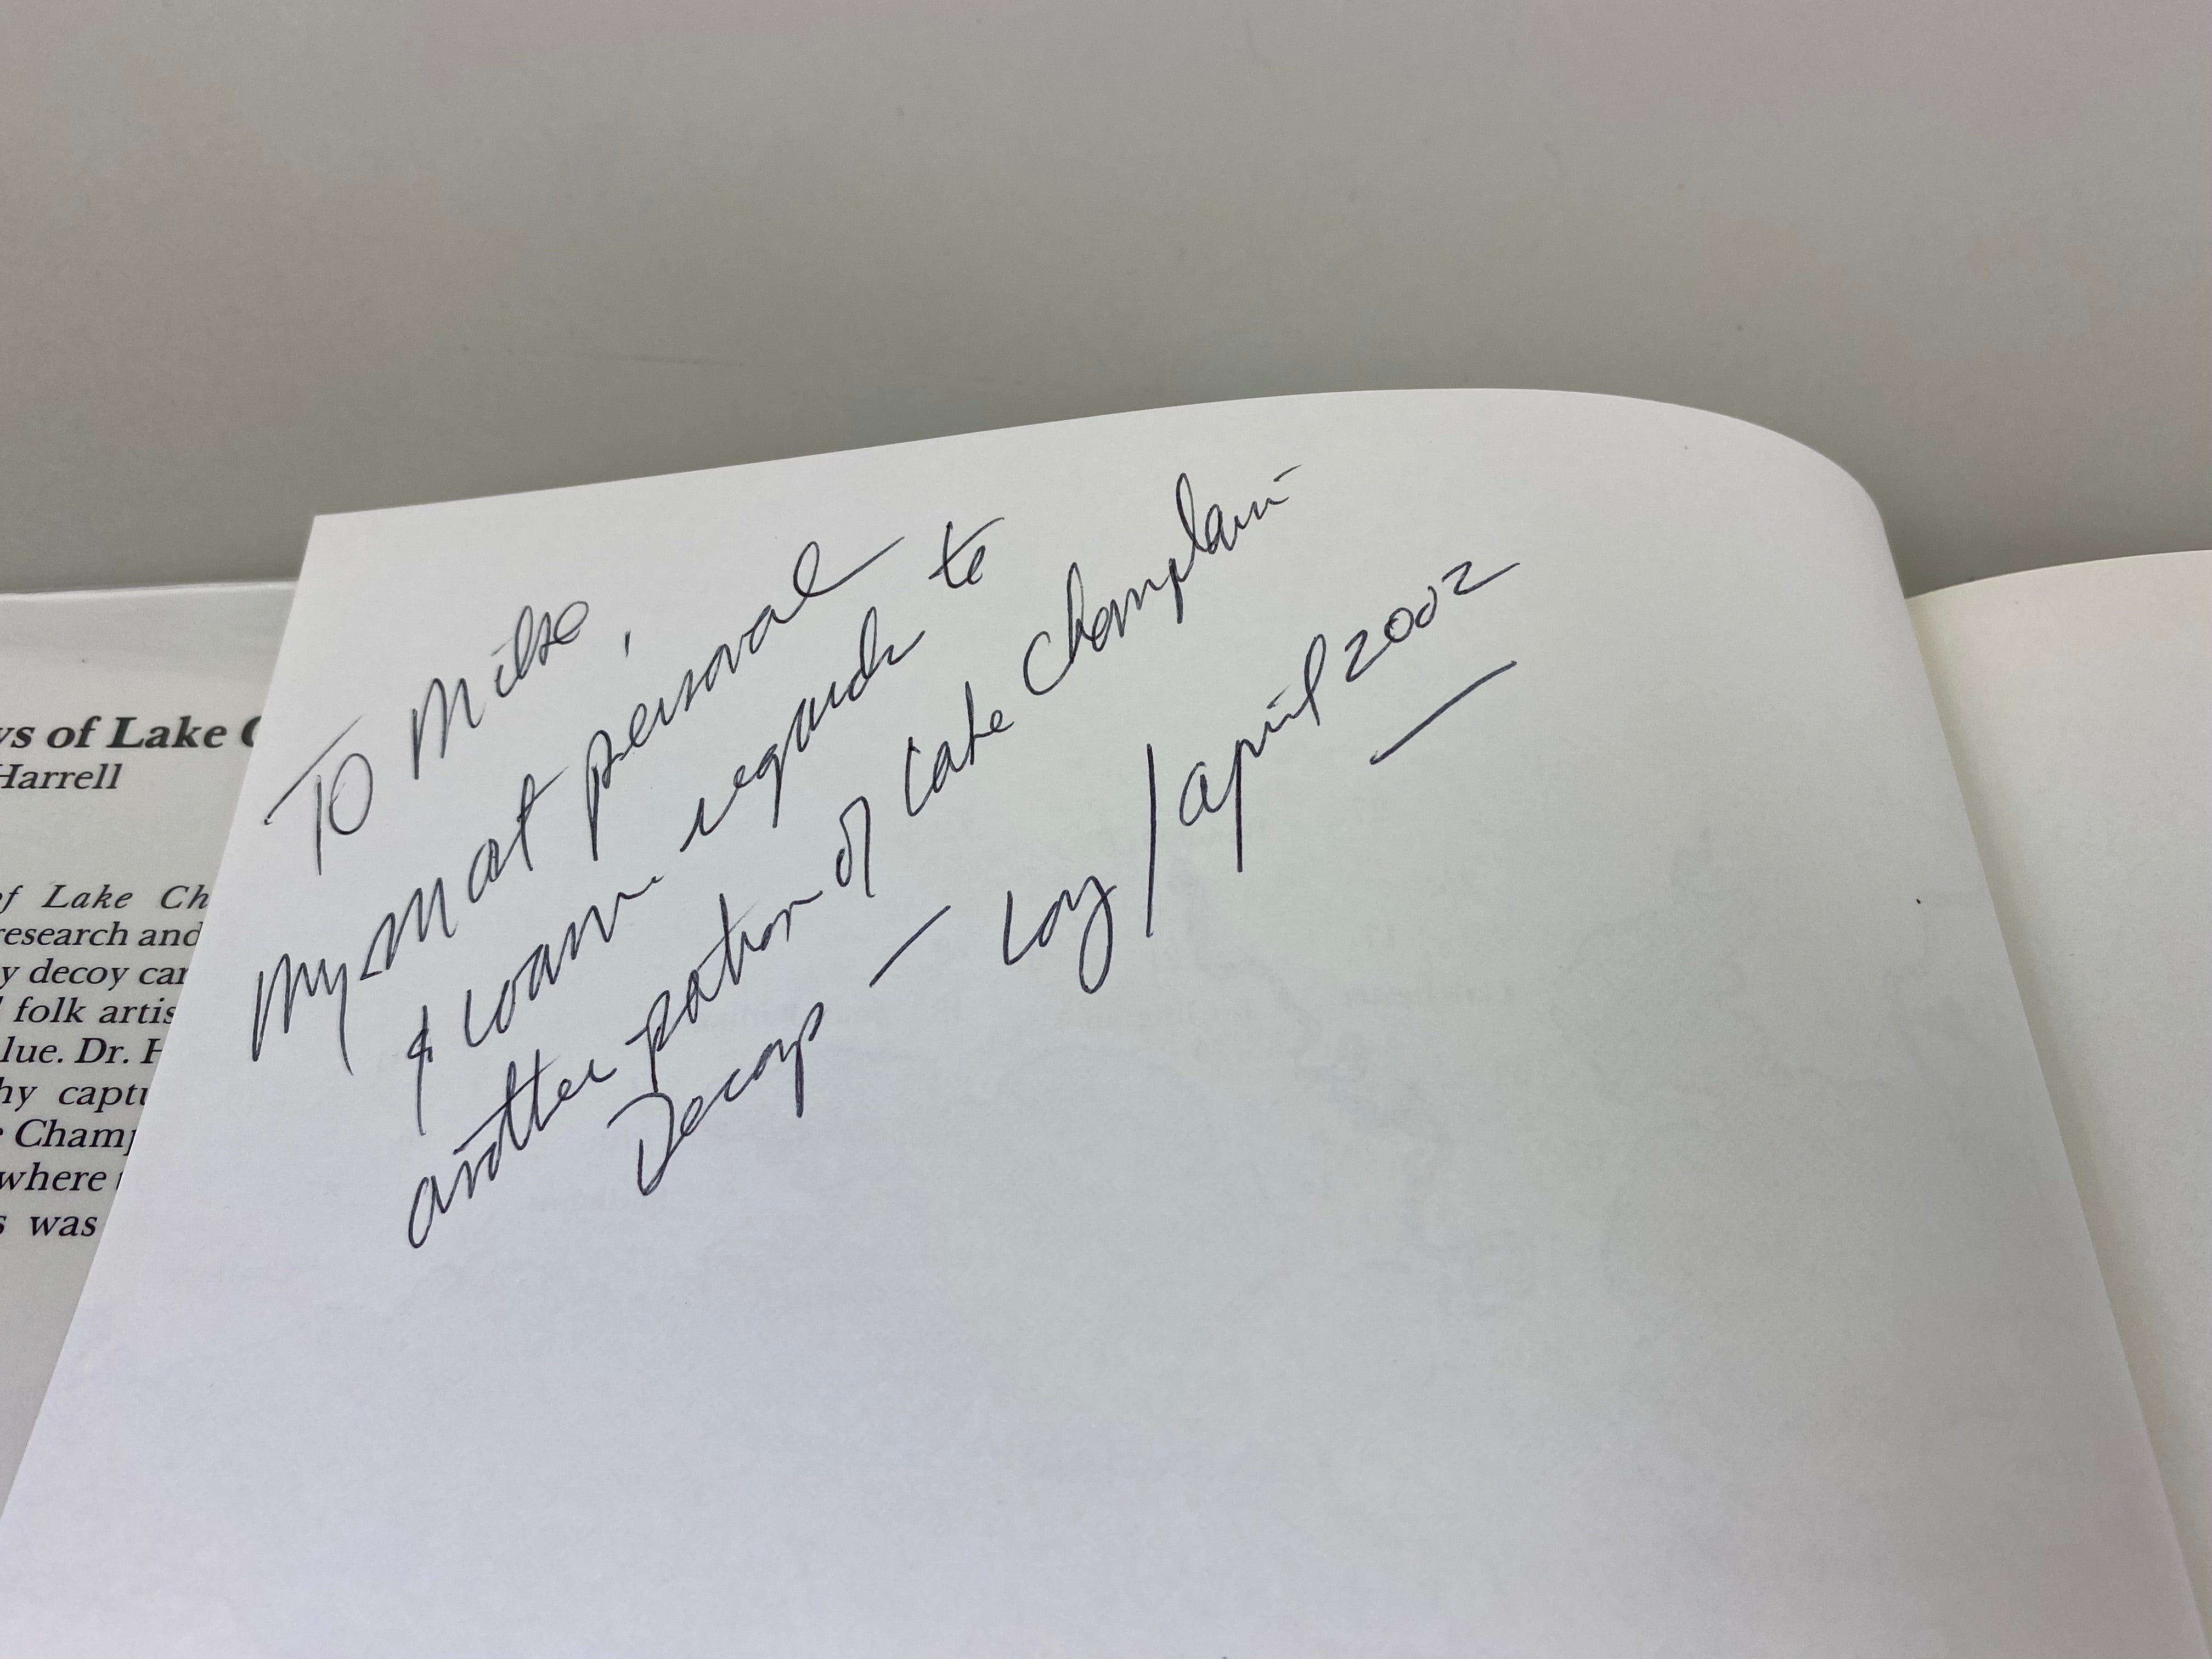 ys of Lake C
Harrell
of Lake Ch
research and
y decoy car
folk artis
lue. Dr. H
hy captu
Champ
where
s was
To Mike,
My most personal
& warm regards to
another patron of Lake Champlain
Decoys — Loy / April 2002